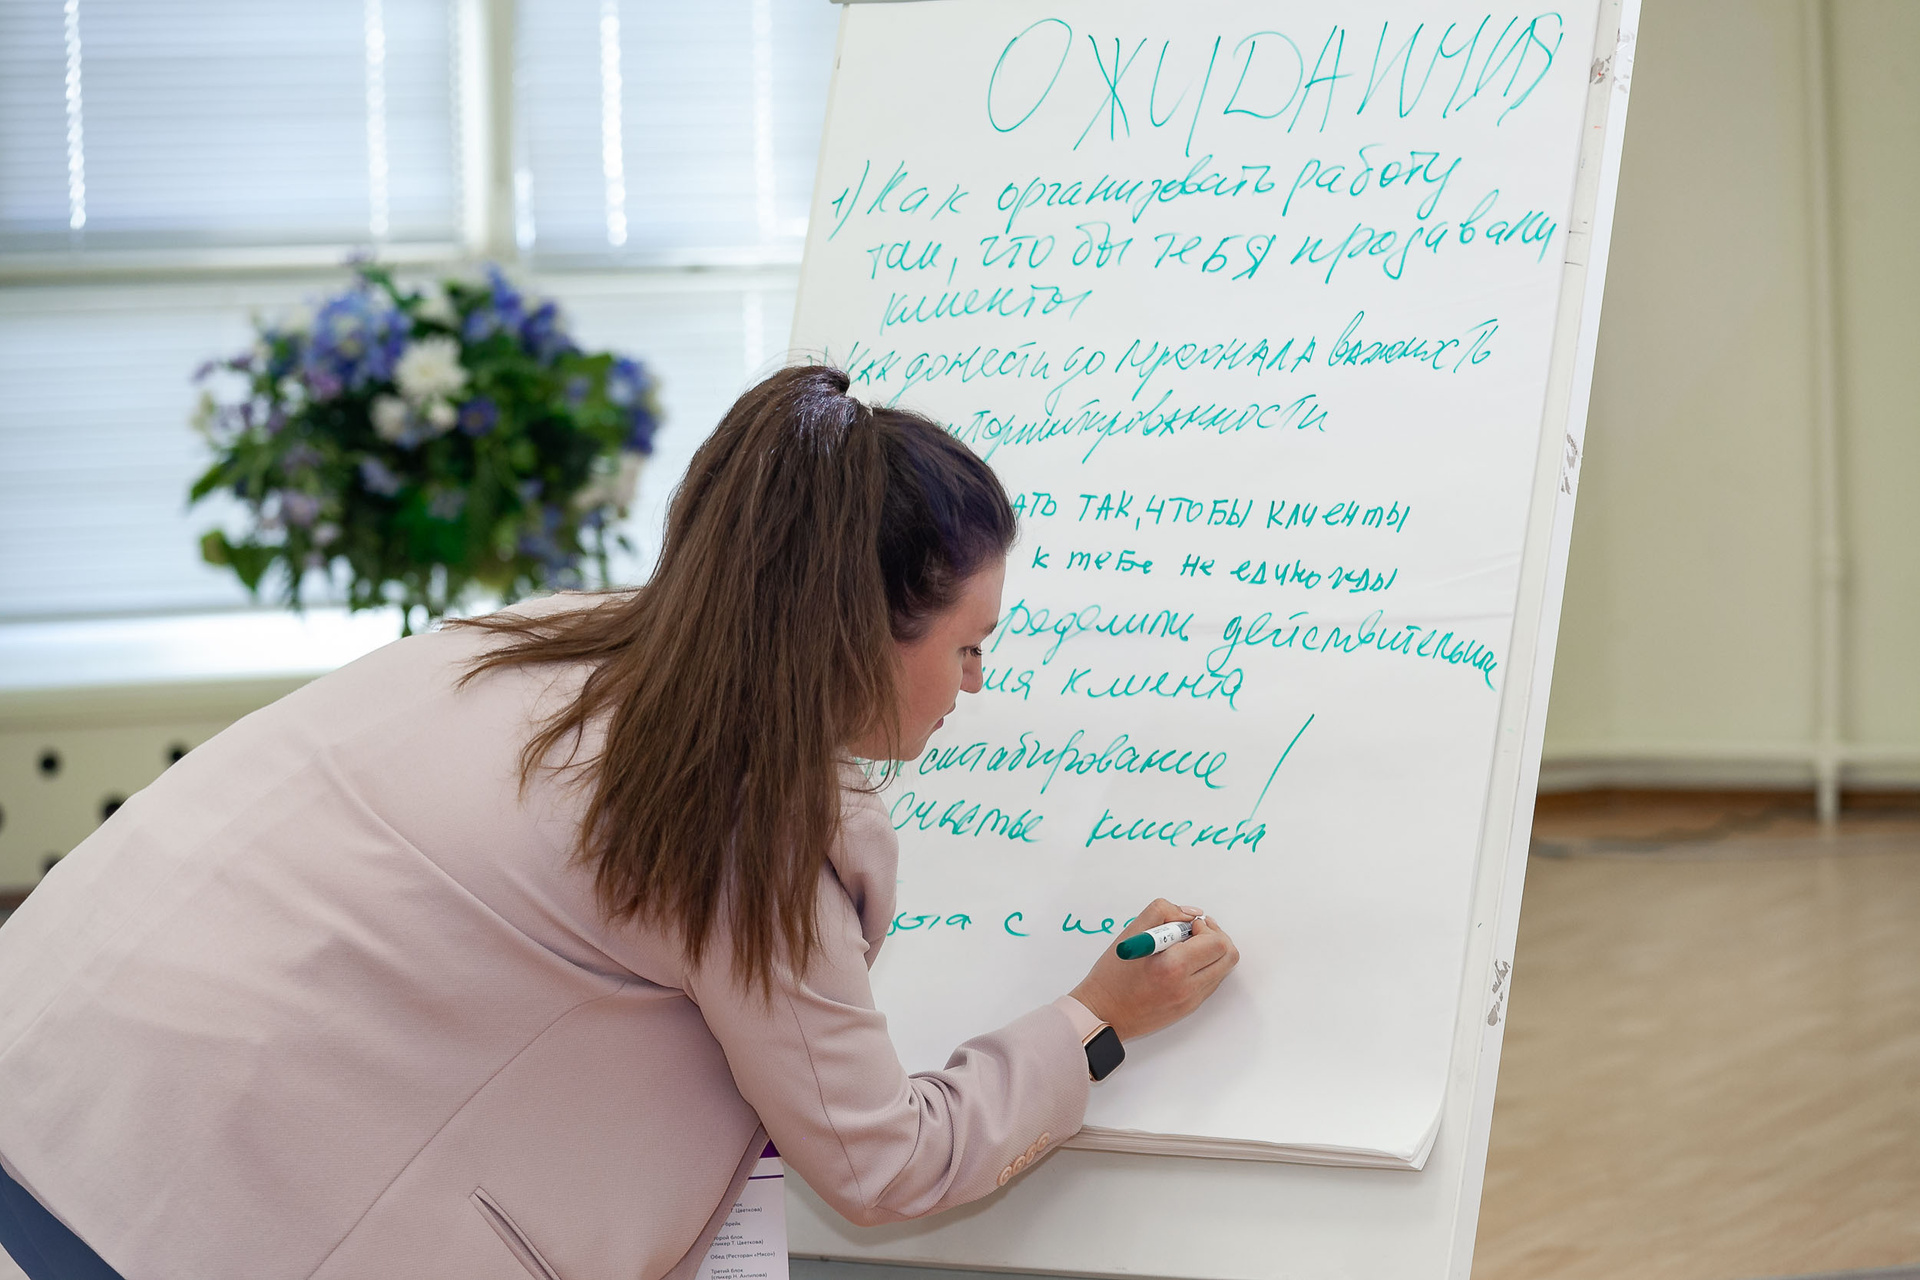 ОЖИДАНИЯ
1) Как организовать работу
так, что бы тебя продавали
клиенты
Как донести до персонала важность
АТЬ ТАК, ЧТОБЫ КЛИЕНТЫ
к тебе не единожды
ределить действительные
ия клиента
/
счастье клиента
ота с
блок
Т. Цветкова)
брейк
Второй блок
(спикер Т. Цветкова)
Обед (Ресторан «Мясо»)
Третий блок
(спикер Н. Антипова)